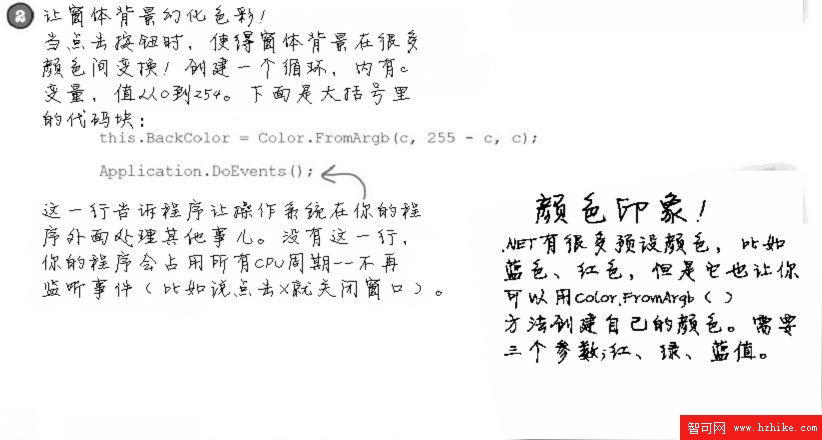 2 让窗体背景幻化色彩！
当点击按钮时，使得窗体背景在很多
颜色间变换！创建一个循环，内有c
变量，值从0到254。下面是大括号里
的代码块：
this.BackColor = Color.FromArgb(c, 255 - c, c);
Application.DoEvents();
这一行告诉程序让操作系统在你的程
序外面处理其他事儿。没有这一行，
你的程序会占用所有CPU周期--不再
监听事件（比如说点击X就关闭窗口）。
颜色印象！
.NET有很多预设颜色，比如
蓝色、红色，但是它也让你
可以用Color.FromArgb（）
方法创建自己的颜色。需要
三个参数；红、绿、蓝值。
智可网 www.hzhike.com